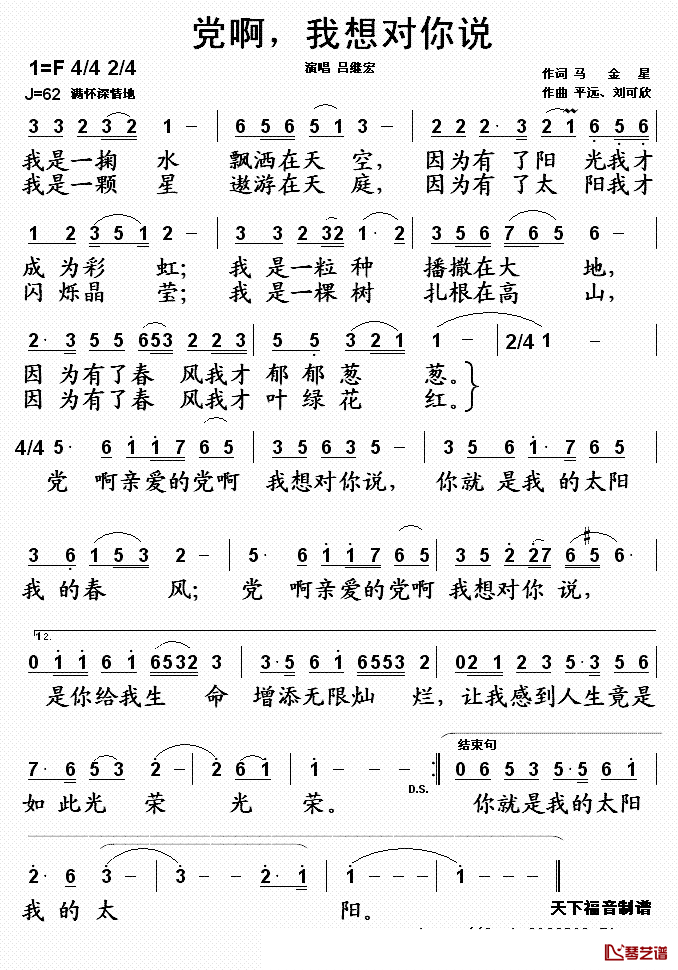 党啊，我想对你说
1=F 4/4 2/4
演唱 吕继宏
作词 马 金 星
J=62 满怀深情地
作曲 平远、刘可欣
3 3 2 3 2 1 – | 6 5 6 5 1 3 – | 2 2 2· 3 2 1 6 5 6 |
我是一掬 水 飘洒在天 空, 因为有 了阳 光我才
我是一颗 星 遨游在天 庭, 因为有 了太 阳我才
1 2 3 5 1 2 – | 3 3 2 3 2 1· 2 | 3 5 6 7 6 5 6 – |
成 为彩 虹; 我 是一粒 种 播撒在大 地,
闪 烁晶 莹; 我 是一棵 树 扎根在高 山,
2· 3 5 5 6 5 3 2 2 3 | 5 5 3 2 1 | 1 – | 2/4 1 – |
因 为有了春 风我才 郁 郁葱 葱。
因 为有了春 风我才 叶 绿花 红。
4/4 5· 6 1 1 7 6 5 | 3 5 6 3 5 – | 3 5 6 1· 7 6 5 |
党 啊亲爱的党啊 我想对你说, 你就 是我 的太阳
3 6 1 5 3 2 – | 5· 6 1 1 7 6 5 | 3 5 2· 2 7 6 #5 6· |
我 的春 风; 党 啊亲爱的党啊 我想对你 说,
12.
0 1 1 6 1 6 5 3 2 3 | 3· 5 6 1 6 5 5 3 2 | 0 2 1 2 3 3· 5 5 6 |
是你给我生 命 增添无限灿 烂, 让我感到人生竟是
结束句
7· 6 5 3 2 – | 2 6 1 | 1 – – – :‖ 0 6 5 3 5 3· 5 6 1 |
D.S.
如 此光 荣 光 荣。 你就是我的太阳
2· 6 3 – | 3 – 2· 1 | 1 – – – | 1 – – – ‖
我 的 太 阳。
天下福音制谱
琴艺谱